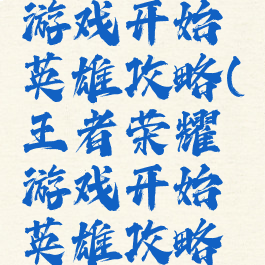 游戏开始
英雄攻略(
王者荣耀
游戏开始
英雄攻略